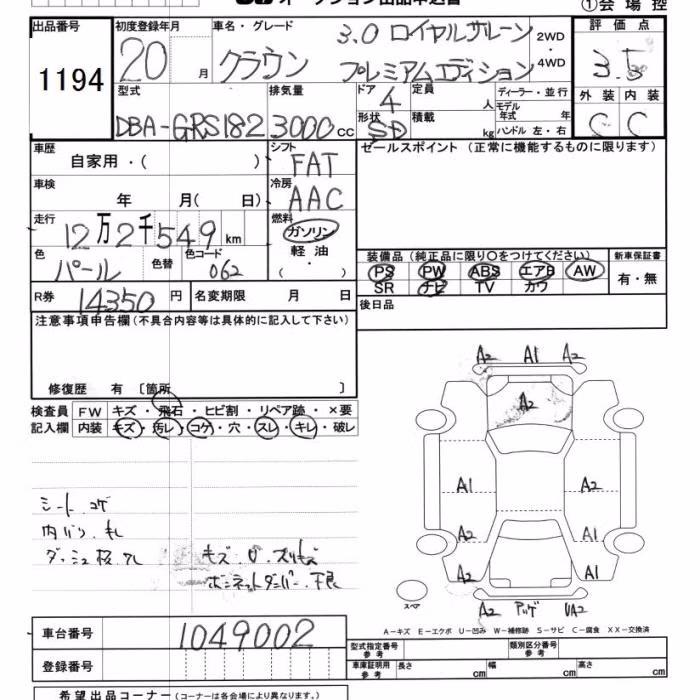 オークション出品申込書
①会場控
出品番号 初度登録年月 車名・グレード 3.0 ロイヤルサルーン 2WD 評価点
1194 20 月 クラウン プレミアムエディション ・4WD 3.5
型式 排気量 ドア 4 定員 人 ディーラー・並行 外装 内装
モデル年式 年
DBA-GRS182 3000cc 形状 SD 積載 kg ハンドル 左・右 C C
車歴 シフト セールスポイント (正常に機能するものに限ります)
自家用・( ) FAT
車検 冷房
年 月( 日) AAC
走行 燃料
12万2千549km ガソリン
色 色替 色コード 軽油
パール 062 (・)
装備品 (純正品に限り○をつけてください) 新車保証書
PS PW ABS エアB AW 有・無
SR ナビ TV カワ
R券 14350円 名変期限 月 日 後日品
注意事項申告欄(不具合内容等は具体的に記入して下さい)
修復歴 有 〔箇所 〕
検査員 FW キズ・飛石・ヒビ割・リペア跡・×要
記入欄 内装 キズ・汚レ・コゲ・穴・スレ・キレ・破レ
A2 A1 A2
A2
A1 A2
A2 A1
A2 A1
スペア
A2 アッゲ UA2
シート コゲ
キズ・U・スリキズ
ボンネットダンパー不良
A-キズ E-エクボ U-凹み W-補修跡 S-サビ C-腐食 XX-交換済
車台番号 1049002
登録番号
型式指定番号 参考 類別区分番号 参考
車庫証明用 参考 長さ cm 幅 cm 高さ cm
希望出品コーナー(コーナーは各会場により異なります。)